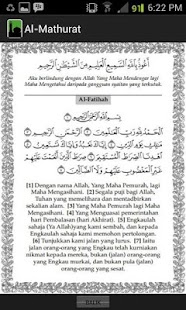 6:22 PM
Al-Mathurat
أَعُوذُ بِاللهِ السَّمِيعِ الْعَلِيمِ مِنَ الشَّيْطٰنِ الرَّجِيمِ
Aku berlindung dengan Allah Yang Maha Mendengar lagi
Maha Mengetahui daripada gangguan syaitan yang terkutuk.
Al-Fatihah
[1] Dengan nama Allah, Yang Maha Pemurah, lagi
Maha Mengasihani. [2] Segala puji bagi Allah, Tuhan
yang memelihara dan mentadbirkan
sekalian alam. [3] Yang Maha Pemurah, lagi Maha
Mengasihani. [4] Yang Menguasai pemerintahan
hari Pembalasan (hari Akhirat). [5] Engkaulah
sahaja (Ya Allah)yang kami sembah, dan kepada
Engkaulah sahaja kami memohon pertolongan.
[6] Tunjukkan kami jalan yang lurus. [7] Jalan
orang-orang yang Engkau telah kurniakan
nikmat kepada mereka, bukan (jalan) orang-orang
yang Engkau murkai, dan bukan pula (jalan)
orang-orang yang sesat.